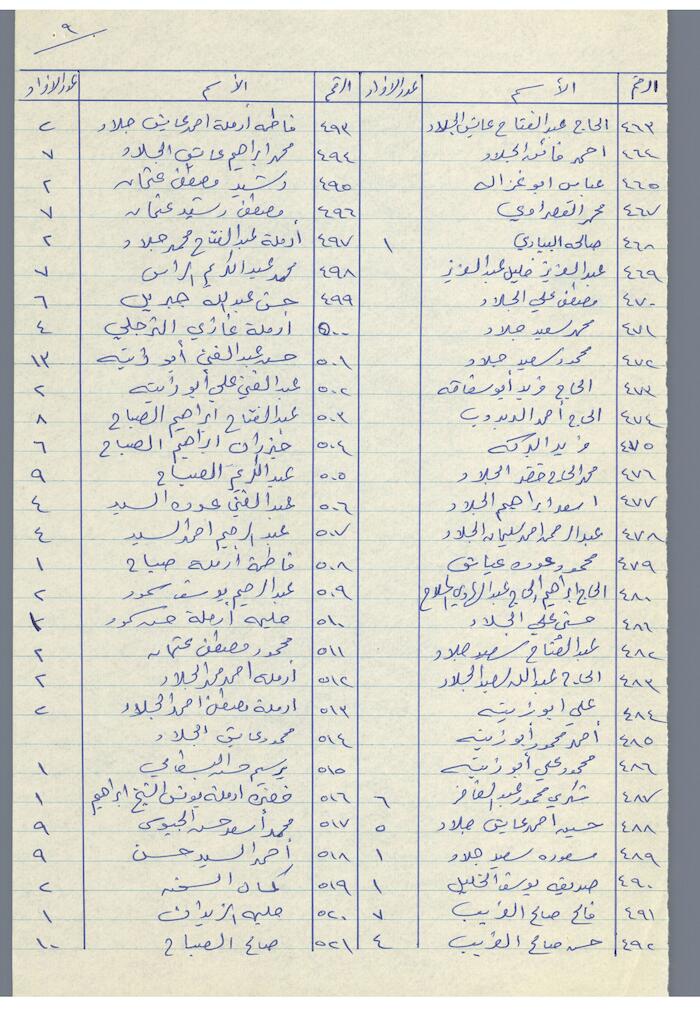 ٩
الرقم	الأسم	عدد الافراد
٤٦٣	الحاج عبد الفتاح عايش الجلاد
٤٦٤	احمد فائد الجلاد
٤٦٥	عباس ابو غزاله
٤٦٧	محمد القصراوي
٤٦٨	صالحه البياري	١
٤٦٩	عبد العزيز خليل عبد العزيز
٤٧٠	مصطفى علي الجلاد
٤٧١	محمد سعيد جلاد
٤٧٢	محمود سعيد جلاد
٤٧٣	الحاج فريد أبو سفاقه
٤٧٤	الحاج أحمد
٤٧٥	فريد البركه
٤٧٦	محمد الحاج خضر الجلاد
٤٧٧	اسعد ابراهيم الجلاد
٤٧٨	عبد الرحمن احمد سليمان الجلاد
٤٧٩	محمود عوده عياش
٤٨٠	الحاج ابراهيم الحاج عبد الهادي الملاح
٤٨١	حسني علي الجلاد
٤٨٢	عبد الفتاح سعيد جلاد
٤٨٣	الحاج عبد الله سعيد الجلاد
٤٨٤	علي ابو زايته
٤٨٥	أحمد محمود أبو زايته
٤٨٦	محمود علي أبو زايته
٤٨٧	شكري محمود عبد الغافر	٦
٤٨٨	حسين احمد عايش جلاد	٥
٤٨٩	مسعوده سعيد جلاد	١
٤٩٠	صديقه يوسف الخليل	١
٤٩١	فالح صالح الغريب	٧
٤٩٢	حسن صالح الغريب	٤
الرقم	الأسم	عدد الافراد
٤٩٣	فاطمه أرملة احمد عايش جلاد	٢
٤٩٤	محمد ابراهيم عايش الجلاد	٧
٤٩٥	رشيد مصطفى عثمان	٢
٤٩٦	مصطفى رشيد عثمان	٧
٤٩٧	أرملة عبد الفتاح محمد جلاد	٢
٤٩٨	محمد عبد الكريم الراس	٧
٤٩٩	حسن عبد الله جبريل	٦
٥٠٠	أرملة غازي الترحلي	٤
٥٠١	حسن عبد الغني أبو زايته	١٣
٥٠٢	عبد الغني علي أبو زايته	٢
٥٠٣	عبد الفتاح ابراهيم الصباح	٨
٥٠٤	خيزران ابراهيم الصباح	٦
٥٠٥	عبد الكريم الصباح	٩
٥٠٦	عبد الغني عوده السيد	٤
٥٠٧	عبد الرحيم احمد السيد	٤
٥٠٨	فاطمة أرملة صباح	١
٥٠٩	عبد الرحيم يوسف	٢
٥١٠	حليمه أرملة حسن	٢
٥١١	محمود مصطفى عثمان	٢
٥١٢	أرملة احمد محمد الجلاد	٢
٥١٣	ارملة مصطفى احمد الجلاد	٢
٥١٤	محمود عايش الجلاد
٥١٥	برسيم حسن البسطامي	١
٥١٦	خضره ارملة يونس الشيخ ابراهيم	١
٥١٧	محمد أسعد حسن الجيوسي	٩
٥١٨	أحمد السيد حسن	٩
٥١٩	كمال	٢
٥٢٠	حليمه الزيدان	١
٥٢١	صالح الصباح	١٠